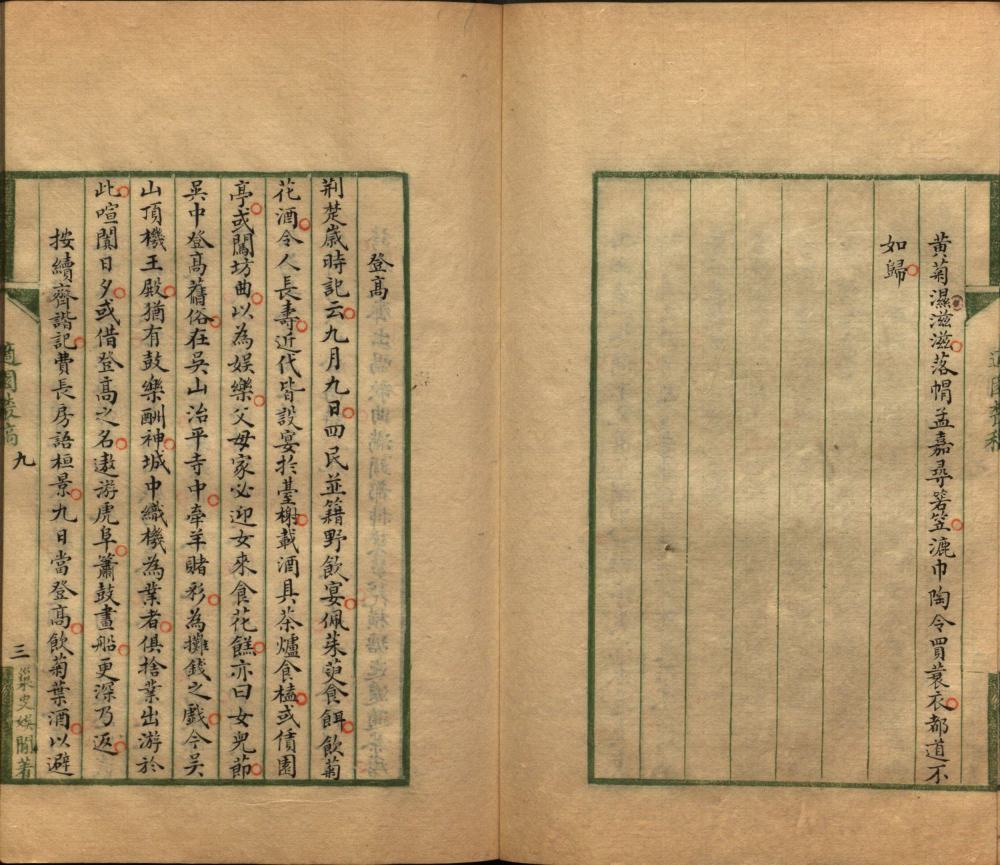 黃菊濕滋滋落帽孟嘉尋箬笠漉巾陶令買蓑衣都道不
如歸
登高
荆楚歲時記云九月九日四民並籍野飲宴佩茱萸食餌飲菊
花酒令人長壽近代皆設宴於臺榭載酒具茶爐食榼或借園
亭或闖坊曲以為娱樂父母家必迎女來食花餻亦曰女兒節
吳中登高舊俗在吳山治平寺中牽羊賭彩為攤錢之戲今吳
山頂機王殿猶有鼓樂酬神城中織機為業者俱捨業出游於
此喧闐日夕或借登高之名遨游虎阜簫鼓畫船更深乃返
按續齊諧記費長房語桓景九日當登高飲菊葉酒以避
適園叢稿
九
三